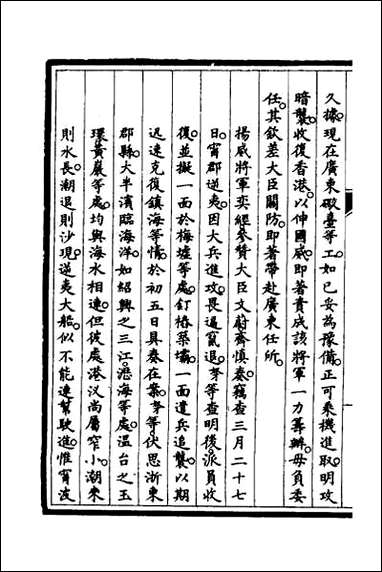 久據現在廣東礮臺等工如已妥為豫備正可乘機進取明攻
暗襲收復香港以伸國威即著責成該將軍一力籌辦毋負委
任其欽差大臣關防即著帶赴廣東任所
揚威將軍奕經參贊大臣文蔚齊慎奏竊查三月二十七
日甯郡逆夷因大兵進攻畏逼竄退努等查明後派員收
復並擬一面於梅墟等處釘樁築壩一面遣兵追襲以期
迅速克復鎮海等情於初五日具奏在案努等伏思浙東
郡縣大半濱臨海洋如紹興之三江瀝海等處溫台之玉
環黃巖等處均與海水相連但彼處港汊尚屬窄小潮來
則水長潮退則沙現逆夷大船似不能連幫駛進惟甯波